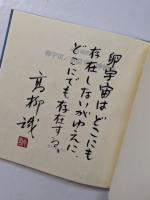 卵宇宙はどこにも
存在しないがゆえに、
どこにでも存在する。
高柳誠